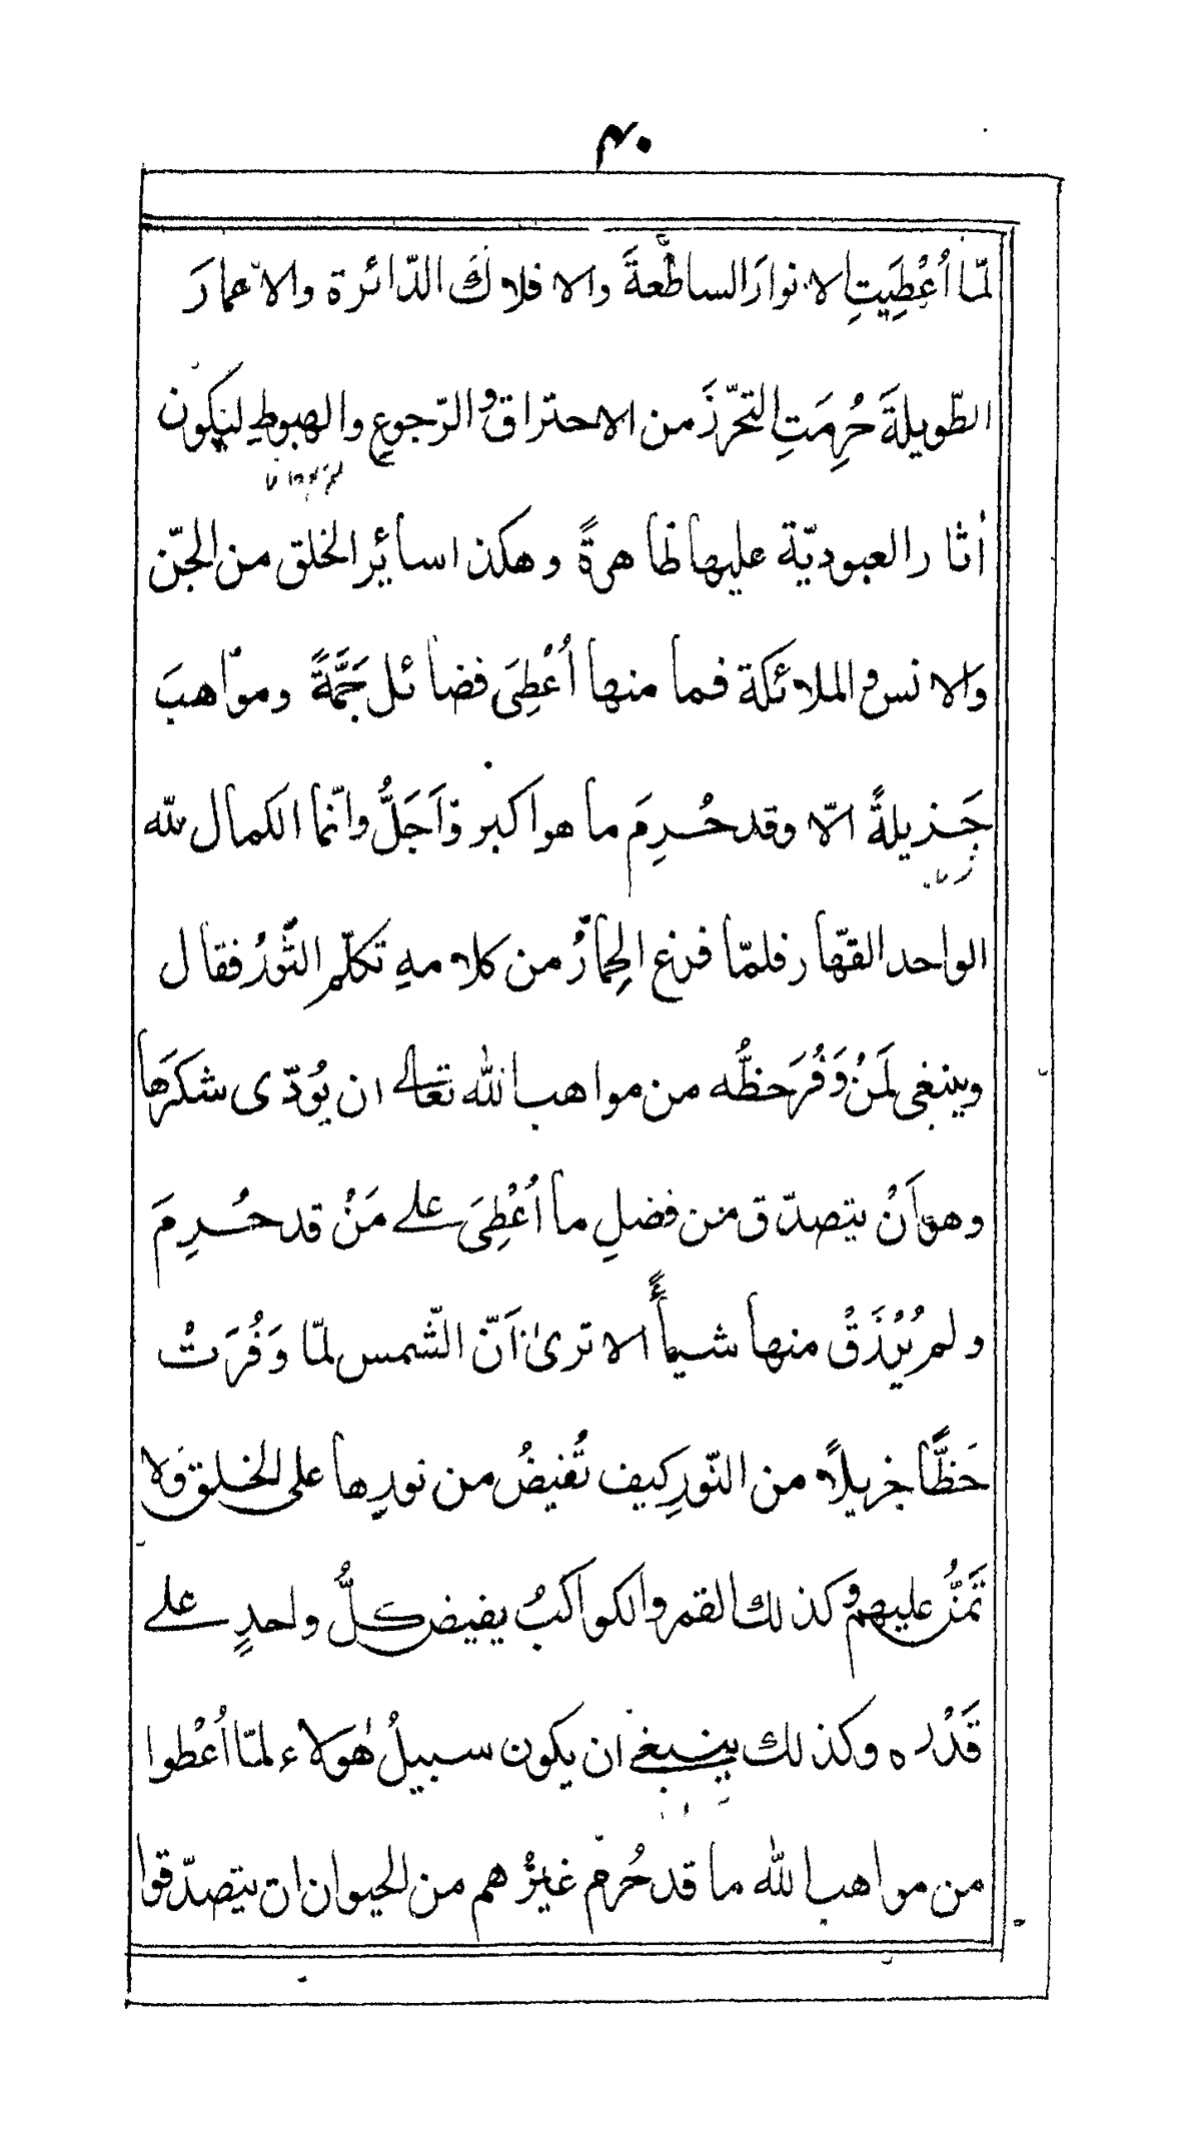 ۴۰
لمّا اُعْطِيَتِ الانوارَ الساطعةَ والافلاكَ الدّائرة والاعمارَ
الطّويلةَ حُرِمَتِ التحرّزَ من الاحتراق والرّجوعِ والهبوطِ ليكون
أثار العبوديّة عليها ظاهرةً وهكذا سائر الخلق من الجنّ
والانس والملائكة فما منها اُعْطِىَ فضائل جَمَّةً ومواهبَ
جَزيلةً الّا وقد حُرِمَ ما هو اكبر وَاَجَلُّ وانّما الكمال للّه
الواحد القهّار فلمّا فرغ الحِمارُ من كلامهِ تكلّم الثَّورُ فقال
وينبغى لَمَنْ وَفُرَ حظُّه من مواهب اللّٰه تعالے ان يُودّى شكرَها
وهو اَنْ يتصدّق من فضلِ ما اُعْطِىَ علے مَنْ قد حُرِمَ
ولم يُرْزَقْ منها شيأً الا ترىٰ اَنّ الشّمس لمّا وَفُرَتْ
حَظًّا جزيلاً من النّورِ كيف تُفيضُ من نورِها على الخلق ولا
تَمنُّ عليهم وكذلك القمر والكواكبُ يفيض كلُّ واحدٍ علے
قَدْره وكذلك ينبغے ان يكون سبيلُ هٰولاء لمّا اُعْطوا
من مواهب اللّٰه ما قد حُرِمَ غيرُهم من الحيوان ان يتصدّقوا